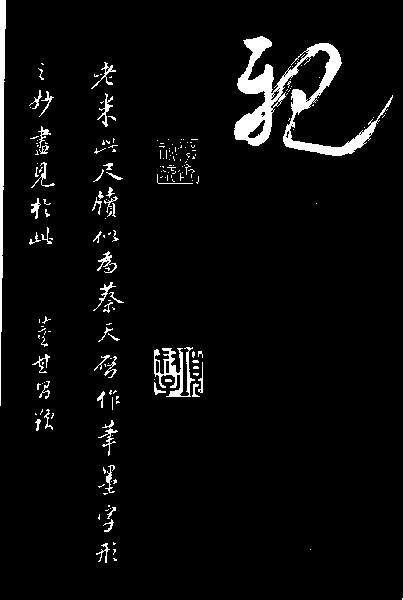 老米此尺牘似為蔡天啓作筆墨字形
之妙盡見於此
董其昌題